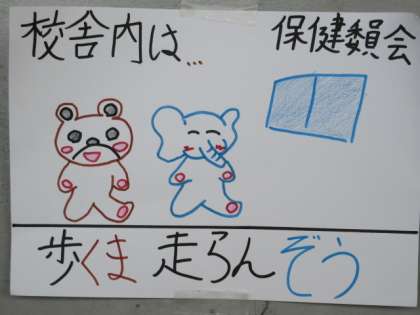 校舎内は...
保健委員会
歩くま 走らんぞう